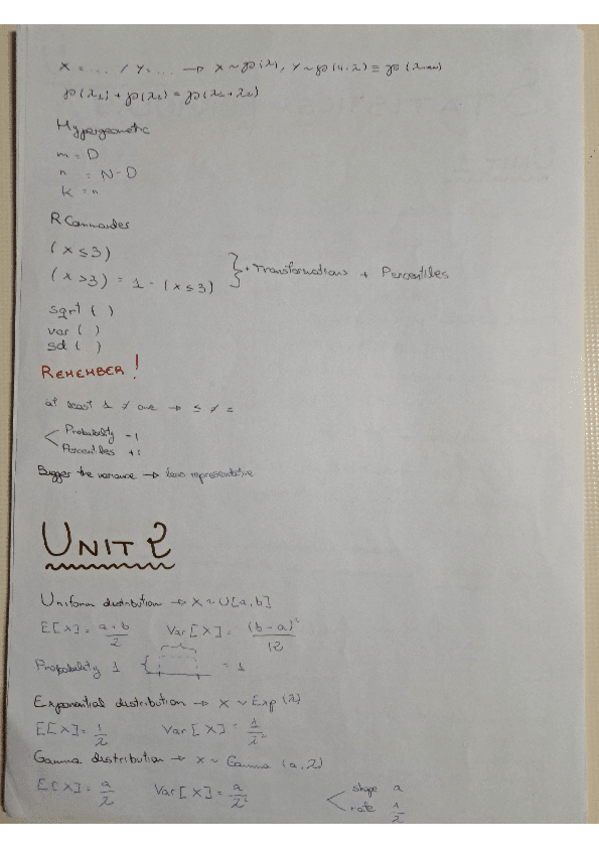 X = ... / Y = ... → X ~ ℘(λ), Y ~ ℘(4·λ) ≡ ℘(λ)
℘(λ₁) + ℘(λ₂) = ℘(λ₁+λ₂)
Hypergeometric
m = D
n = N-D
K = n
R Commander
(X ≤ 3)
(X > 3) = 1 - (X ≤ 3) } · Transformations + Percentiles
sqrt ( )
var ( )
sd ( )
REMEMBER!
at least 1 / one → ≤ / =
Probability - 1
Percentiles + 1
Bigger the variance → less representative
UNIT 2
Uniform distribution → X ~ U[a,b]
E[X] = a+b/2 Var[X] = (b-a)²/12
Probability 1 = 1
Exponential distribution → X ~ Exp(λ)
E[X] = 1/λ Var[X] = 1/λ²
Gamma distribution → X ~ Gamma (a,λ)
E[X] = a/λ Var[X] = a/λ² shape a
rate 1/λ